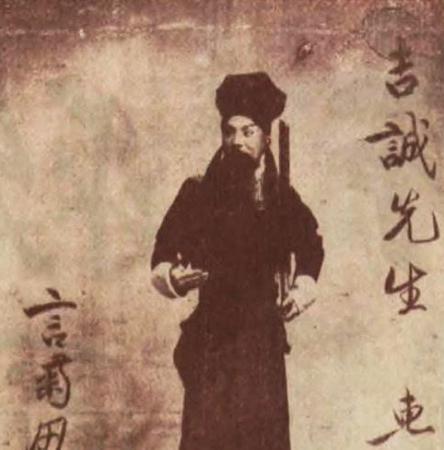 吉誠先生 惠
言菊朋